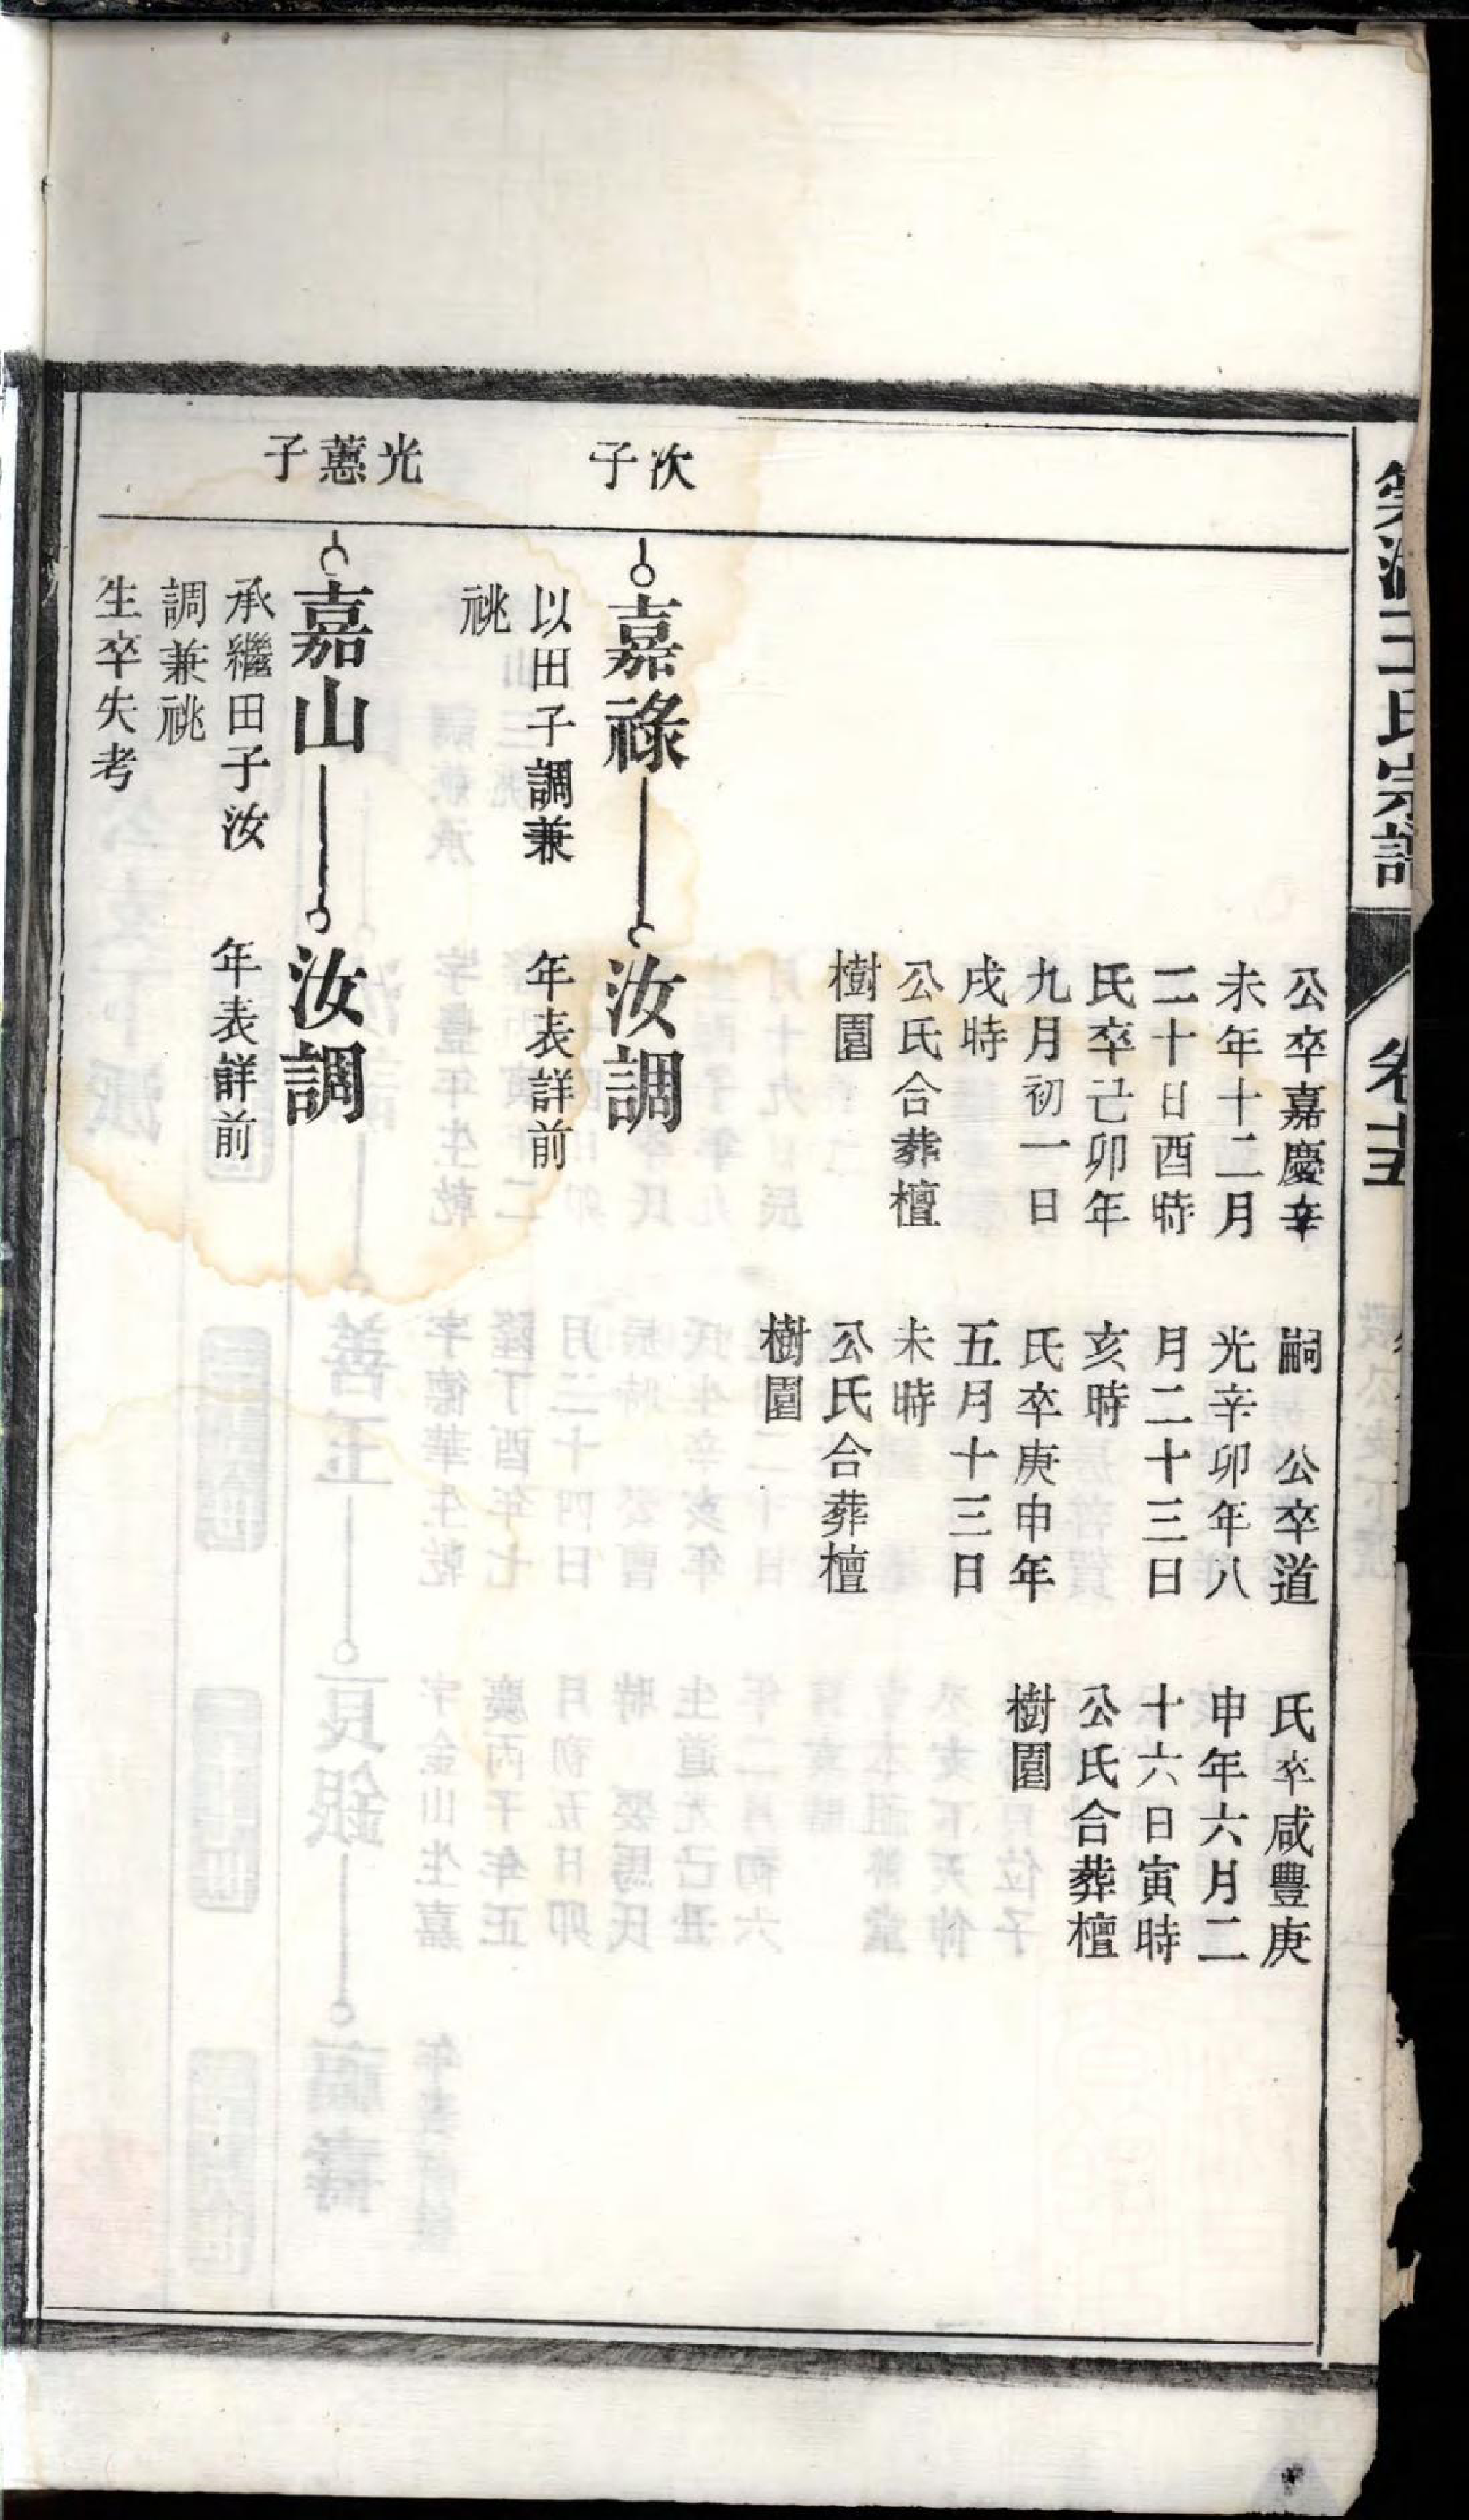 王氏宗譜
公卒嘉慶辛
未年十二月
二十日酉時
氏卒己卯年
九月初一日
戌時
公氏合葬檀
樹園
嗣 公卒道
光辛卯年八
月二十三日
亥時
氏卒庚申年
五月十三日
未時
公氏合葬檀
樹園
氏卒咸豐庚
申年六月二
十六日寅時
公氏合葬檀
樹園
次子
嘉祿
以田子調兼
祧
汝調
年表詳前
光蕙子
嘉山
承繼田子汝
調兼祧
生卒失考
汝調
年表詳前